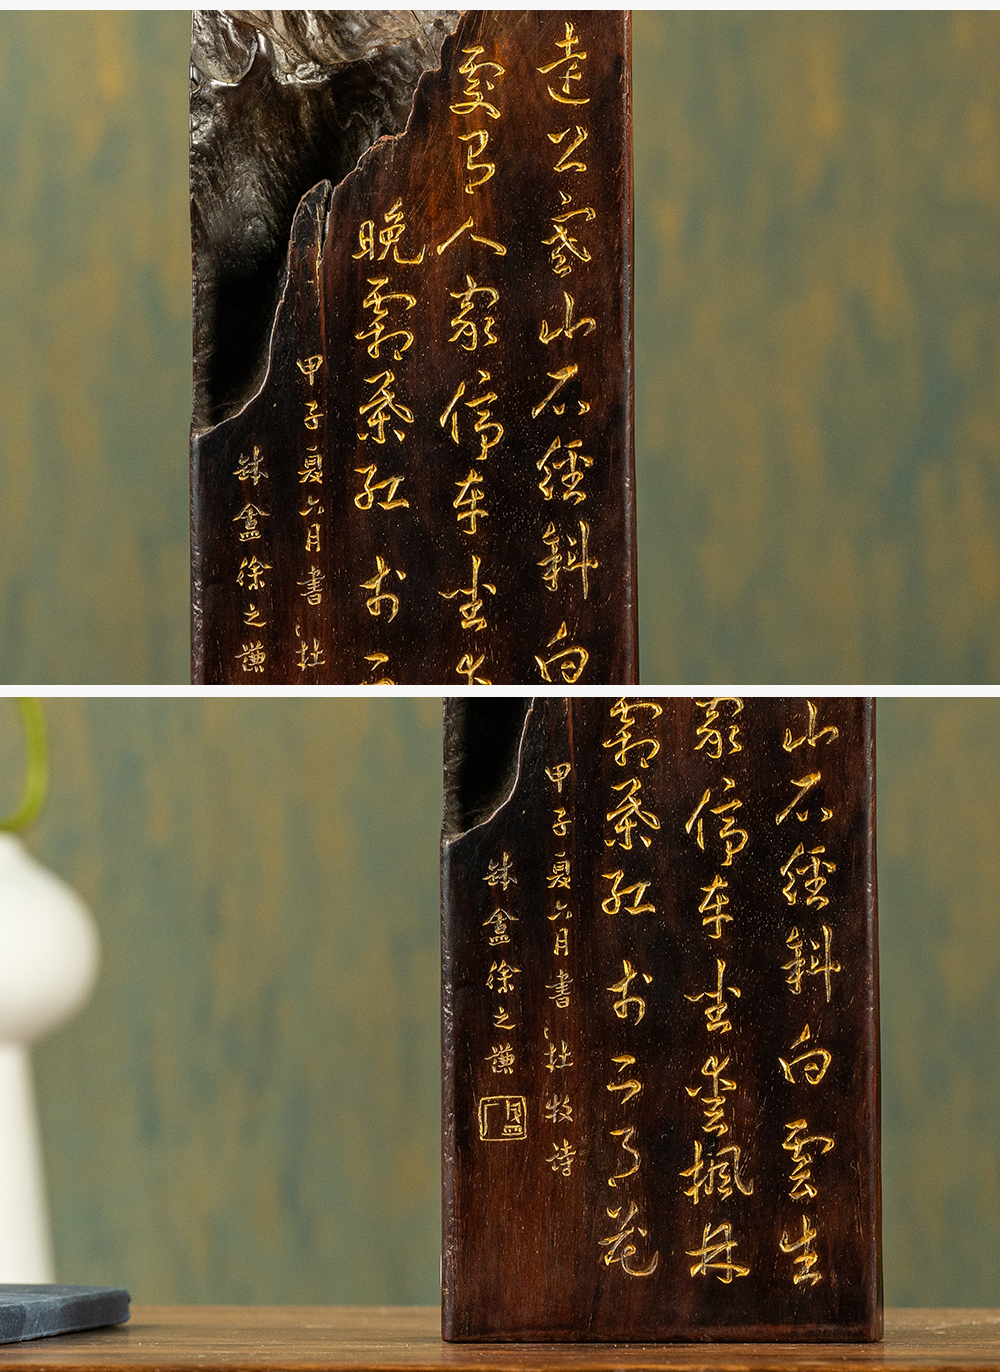 遠上寒山石徑斜白
處有人家停車坐
晚霜葉紅於二
甲子夏六月書杜
缽盦徐之謙
山石徑斜白雲生
家停車坐愛楓林
霜葉紅於二月花
甲子夏六月書杜牧詩
缽盦徐之謙